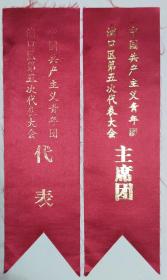 中国共产主义青年团
浦口区第五次代表大会
代表
中国共产主义青年团
浦口区第五次代表大会
主席团